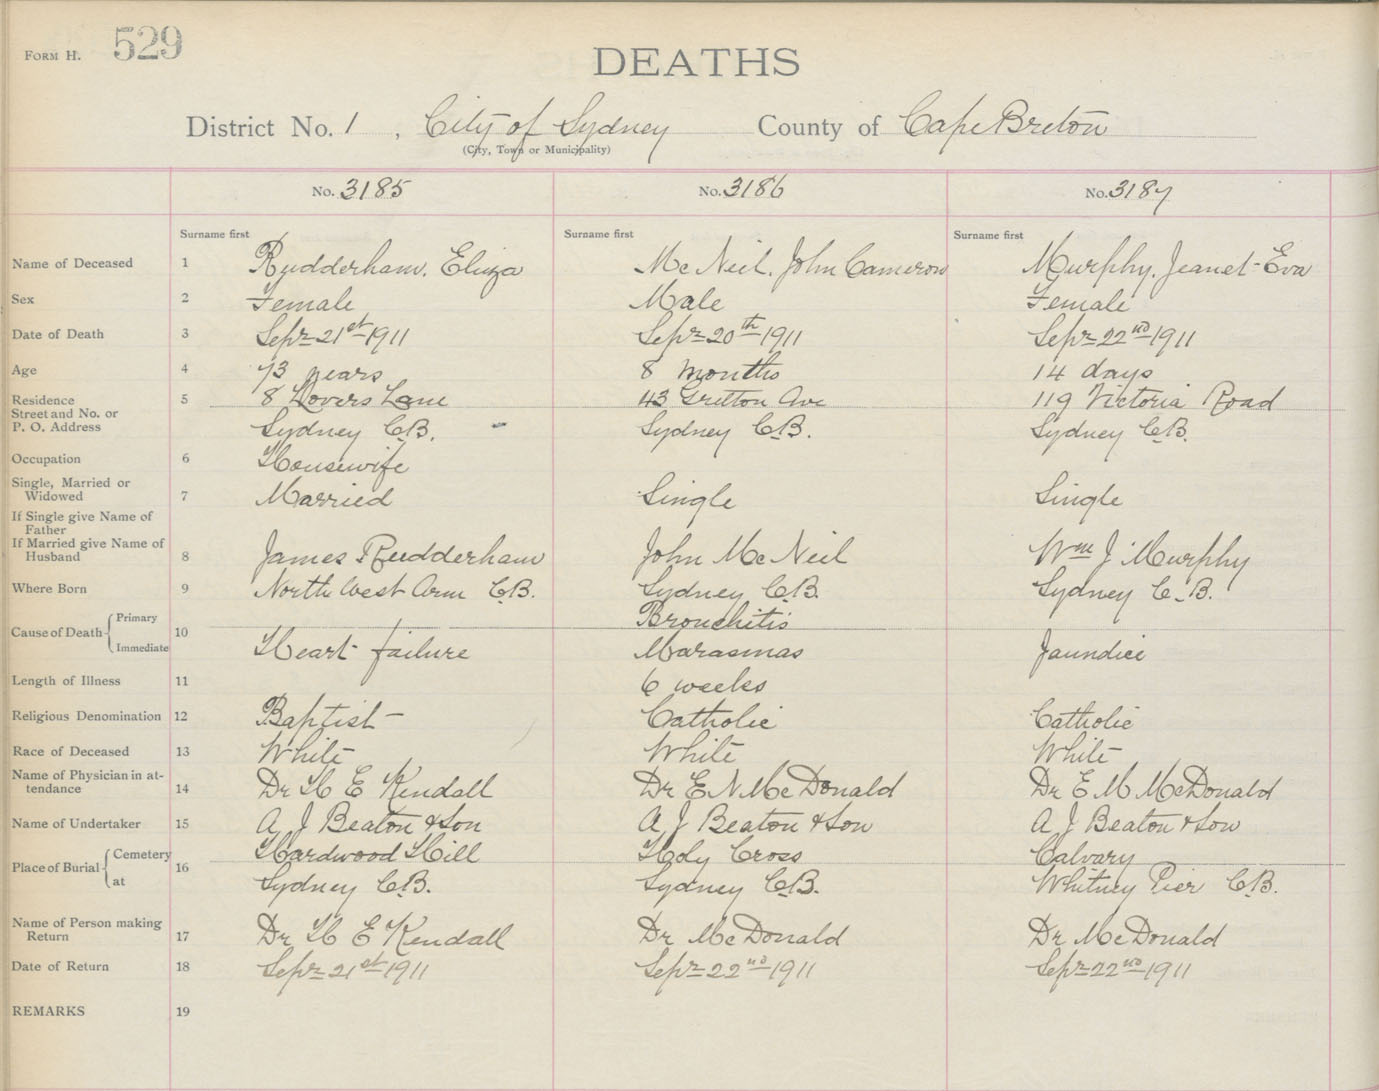 FORM H. 529
DEATHS
District No. 1, City of Sydney County of Cape Breton
(City, Town or Municipality)
No. 3185 No. 3186 No. 3187
Surname first Surname first Surname first
Name of Deceased 1 Rudderham, Eliza McNeil, John Cameron Murphy, Jeanet Eva
Sex 2 Female Male Female
Date of Death 3 Sept 21st 1911 Sept 20th 1911 Sept 22nd 1911
Age 4 73 years 8 months 14 days
Residence 5 8 Lovers Lane 43 Ave 119 Victoria Road
Street and No. or
P. O. Address Sydney C.B. Sydney C.B. Sydney C.B.
Occupation 6 Housewife
Single, Married or
Widowed 7 Married Single Single
If Single give Name of
Father
If Married give Name of
Husband 8 James Rudderham John McNeil Wm J Murphy
Where Born 9 North West Arm C.B. Sydney C.B. Sydney C.B.
Cause of Death Primary Bronchitis
10
Immediate Heart failure Marasmas Jaundice
Length of Illness 11 6 weeks
Religious Denomination 12 Baptist Catholic Catholic
Race of Deceased 13 White White White
Name of Physician in at-
tendance 14 Dr H E Kendall Dr E N McDonald Dr E M McDonald
Name of Undertaker 15 A J Beaton & Son A J Beaton & Son A J Beaton & Son
Place of Burial Cemetery Hardwood Hill Holy Cross Calvary
16
at Sydney C.B. Sydney C.B. Whitney Pier C.B.
Name of Person making
Return 17 Dr H E Kendall Dr McDonald Dr McDonald
Date of Return 18 Sept 21st 1911 Sept 22nd 1911 Sept 22nd 1911
REMARKS 19